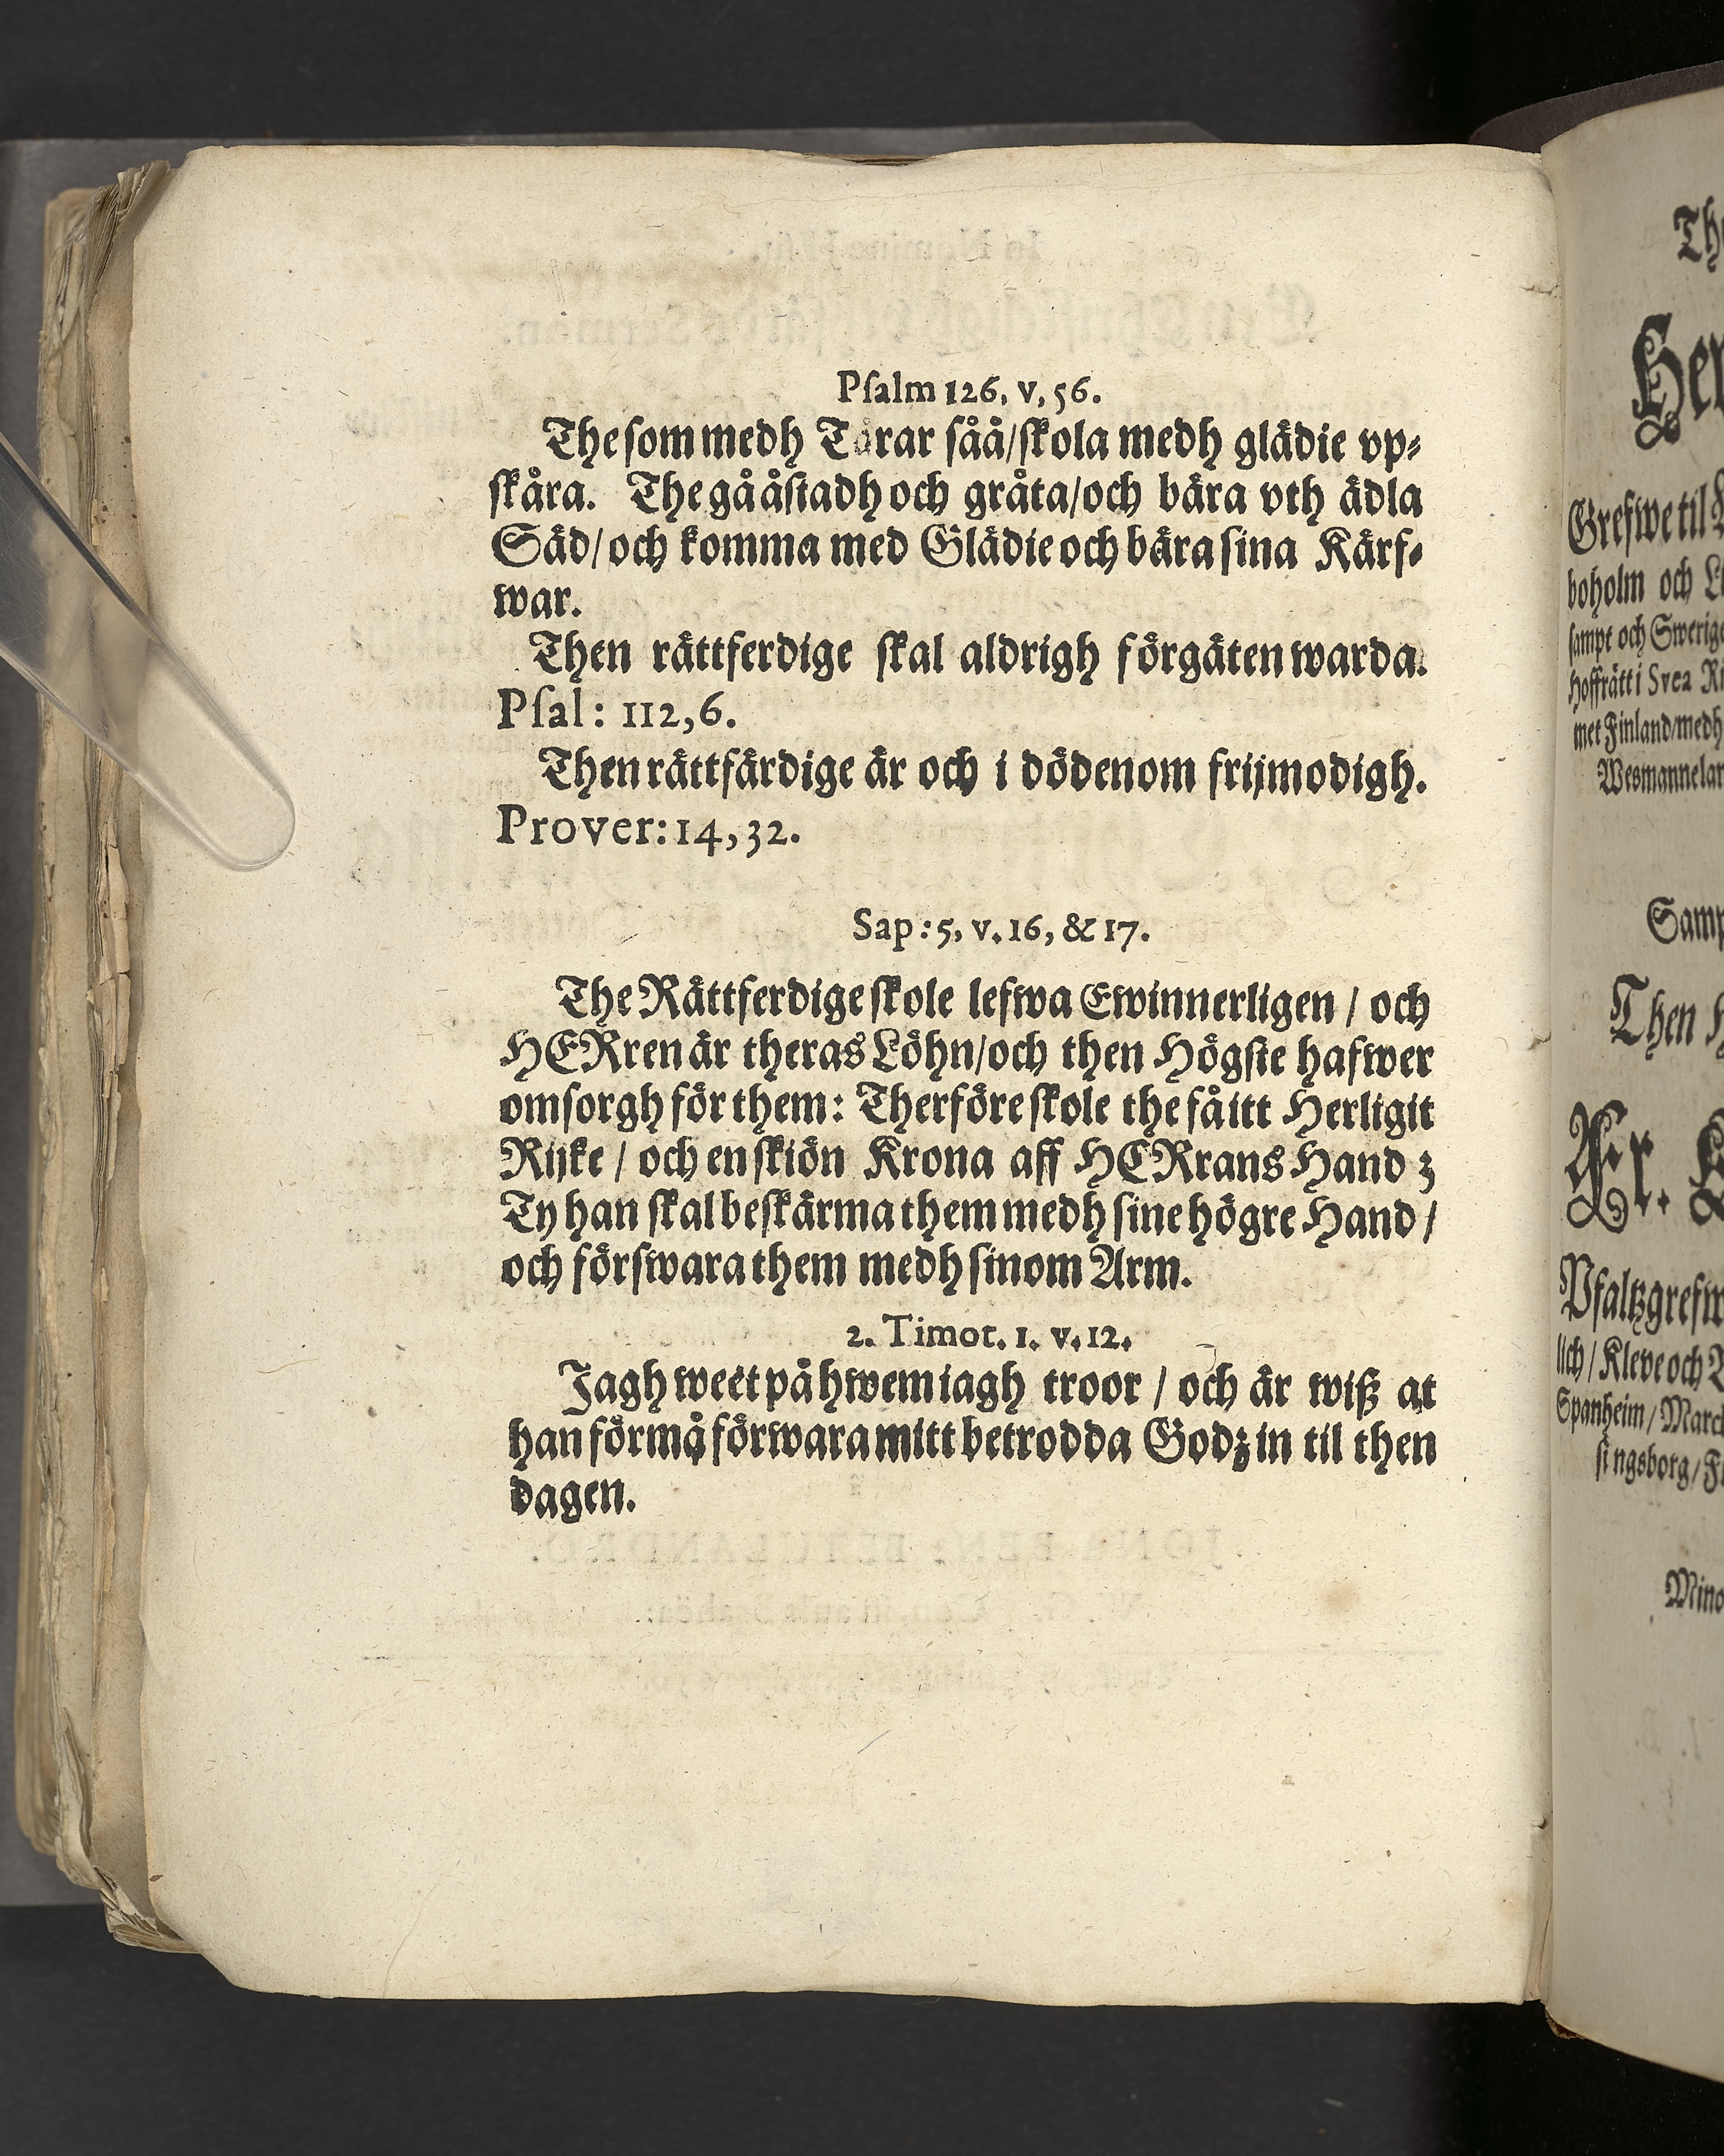 Pſalm 126, v, 56.
The ſom medh Tårar ſåå/ſkola medh glädie vp⸗
ſkåra. The gå åſtadh och gråta/och bära vth ädla
Säd/och komma med Glädie och bära ſina Kärf⸗
war.
Then rättferdige ſkal aldrigh förgäten warda.
Pſal: 112,6.
Then rättfärdige är och i dödenom frijmodigh.
Prover: 14, 32.
Sap: 5, v. 16, & 17.
The Rättferdige ſkole lefwa Ewinnerligen / och
HERren är theras Löhn/och then Högſte hafwer
omſorgh för them: Therföre ſkole the få itt Herligit
Rijke / och en ſkiön Krona aff HERrans Hand ꝫ
Ty han ſkal beſkärma them medh ſine högre Hand /
och förſwara them medh ſinom Arm.
2. Timot. 1. v. 12.
Jagh weet på hwem iagh troor / och är wiß at
han förmå förwara mitt betrodda Godz in til then
dagen.
Grefwe til
boholm och
ſampt och Swerige
Hoffrätt i Svea
met Finland/medh
Then
Fr.
lich / Kleve och
Spanheim / March
ſingsborg /